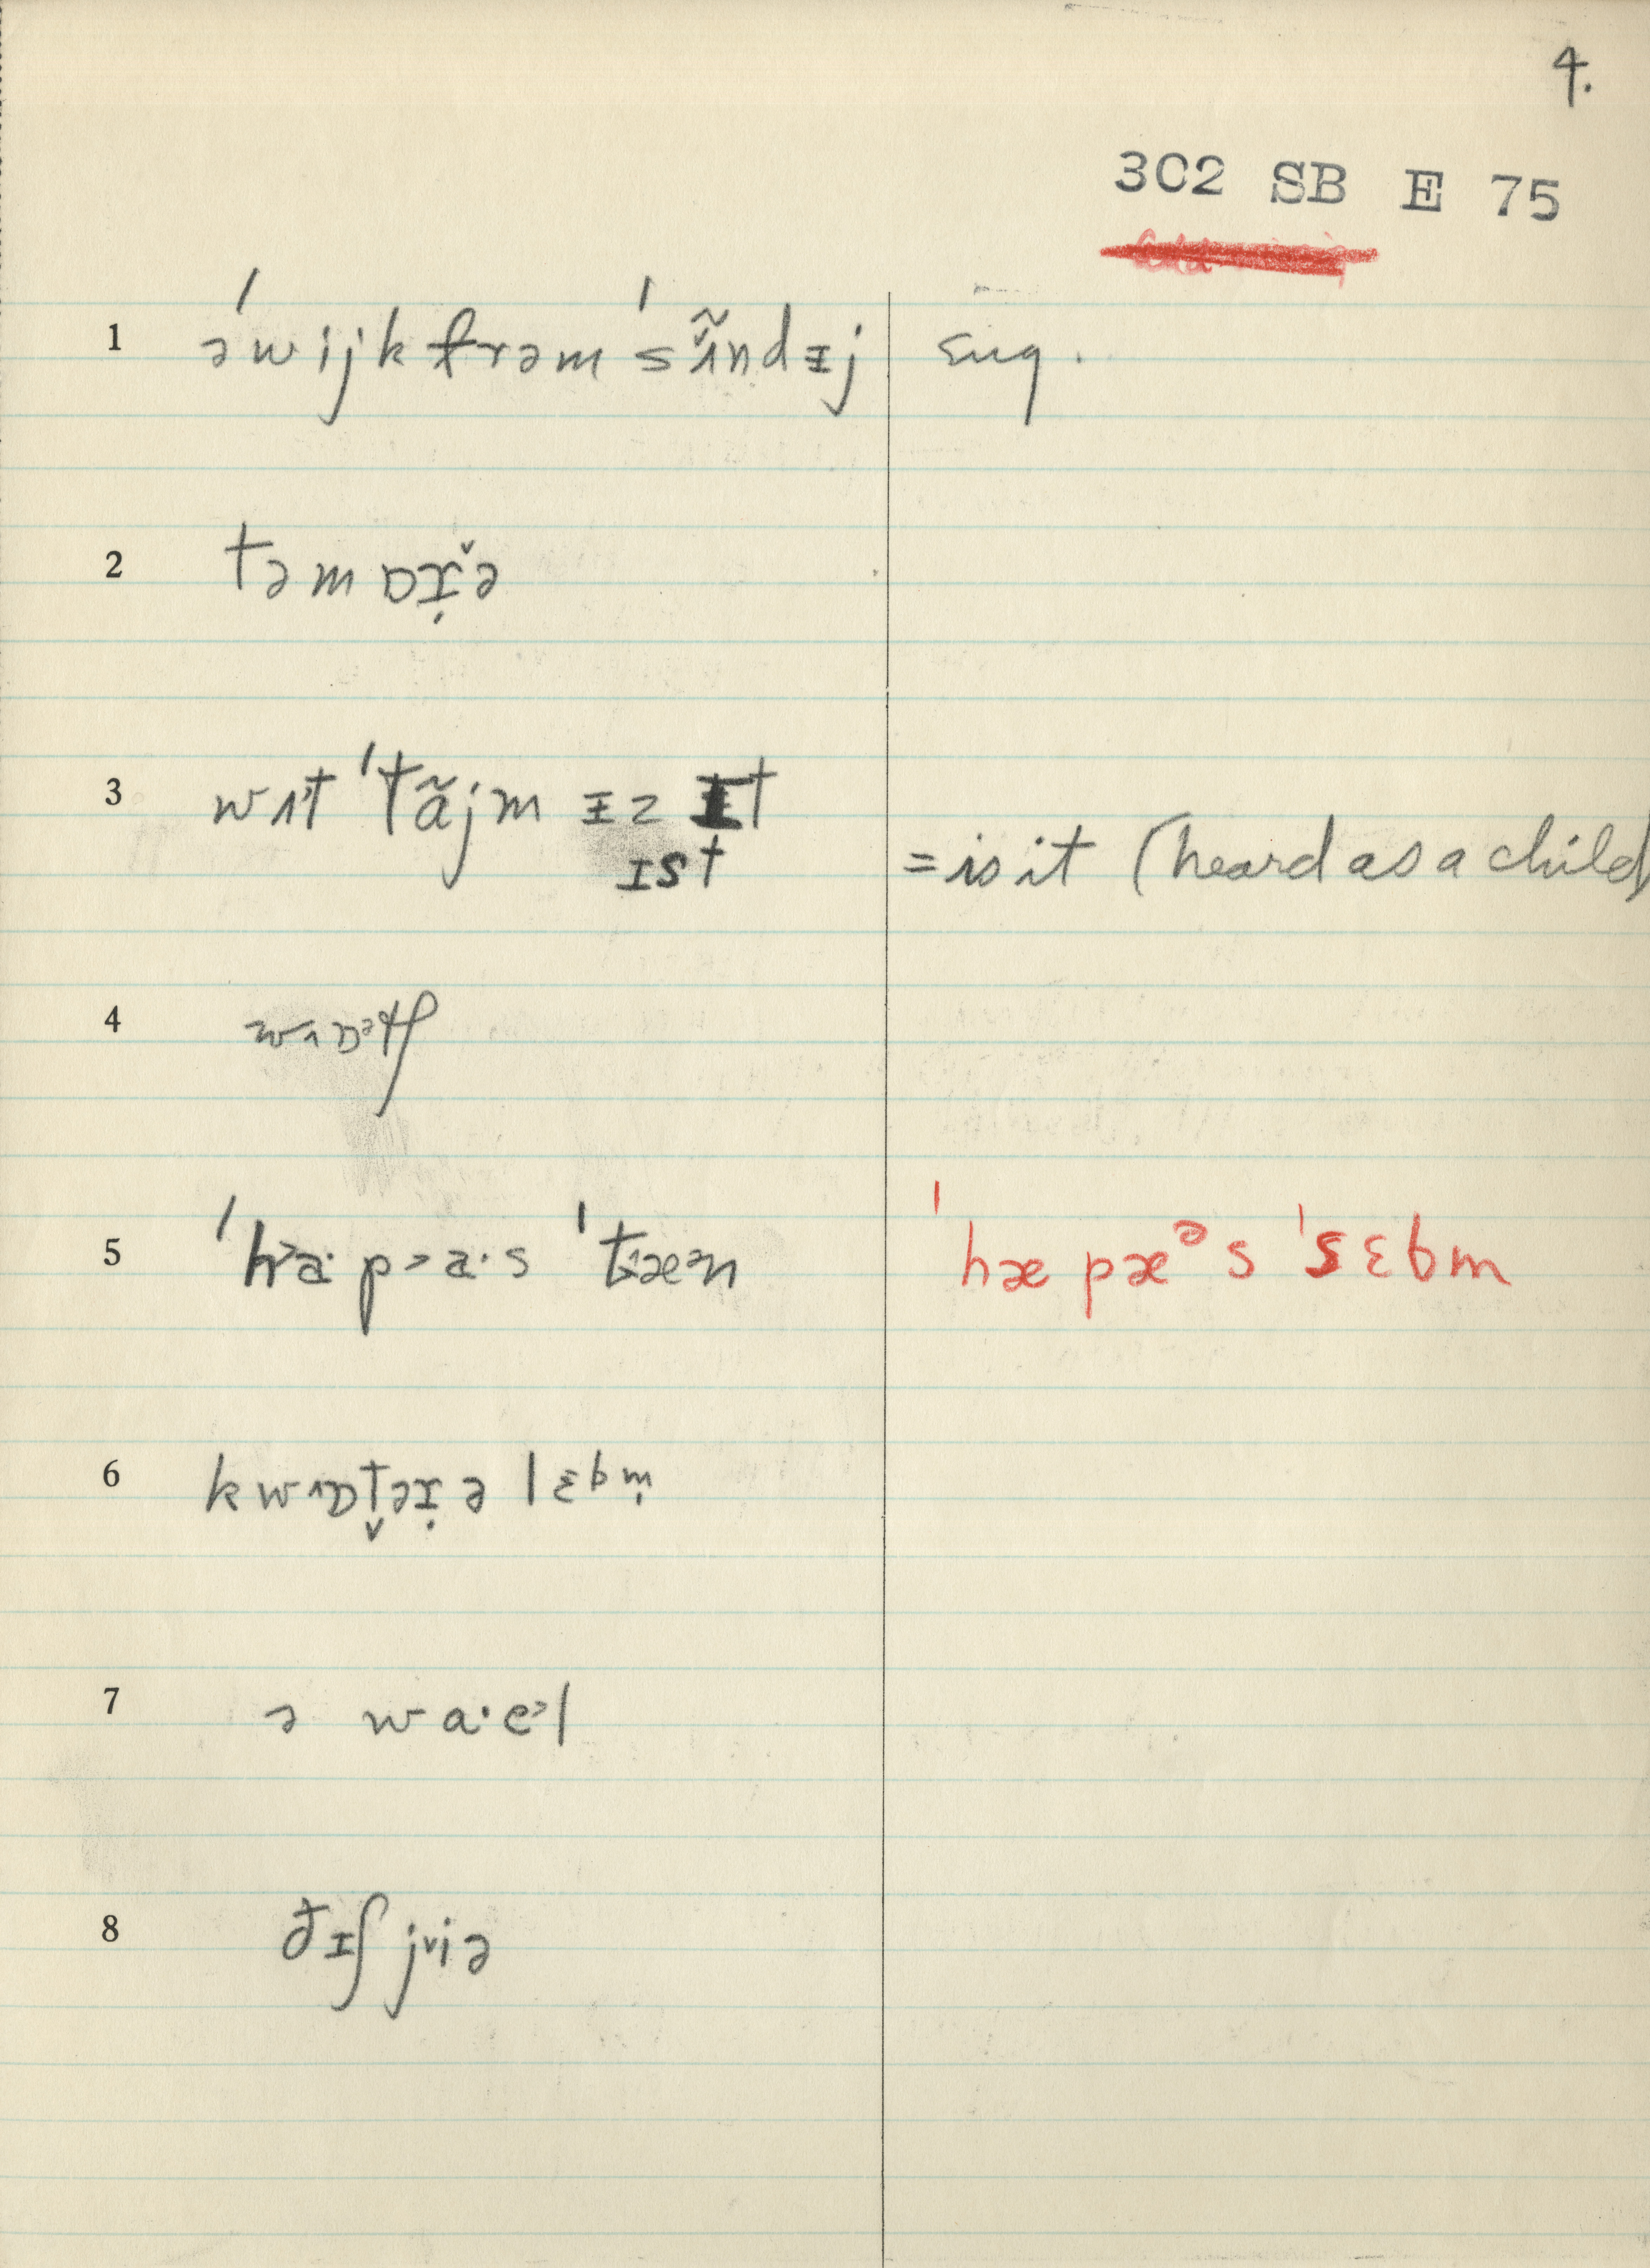 4.
302 SB E 75
1 ə ˈwijk frəm ˈsʌ̃ndᵻj sug.
2 təmɒɪ̣̌ə
3 wʌt ˈtãjm ᵻz ᵻt
ɪst = is it (heard as a child
4 wʌɒətʃ
5 ˈhæ˃·pɔa·s ˈtɛæən ˈhæ pæᵊs ˈsɛbm
6 kwʌɒt̬əɪ̣ə lɛbm̩
7 ə wa·e˃l
8 ðɪʃ jiə